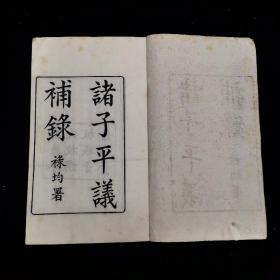 諸子平議
補錄
祿均署